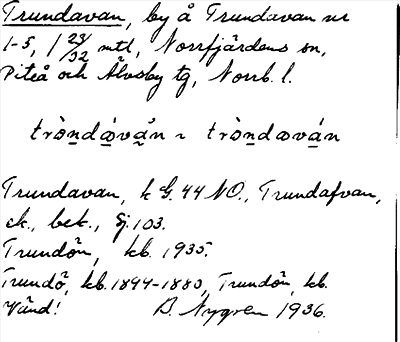 Trundavan, by å Trundavan nr
1-5, 1 23/32 mtl, Norrfjärdens sn,
Piteå och Älvsby tg, Norrb. l.
tròndaván ~ tròndaván
Trundavan, k G. 44 NO., Trundafvan,
ek., bek., Gj. 103.
Trundön, kb. 1935.
Trundö, kb. 1894-1880, Trundön, kb.
Vänd! B. Nygren 1936.